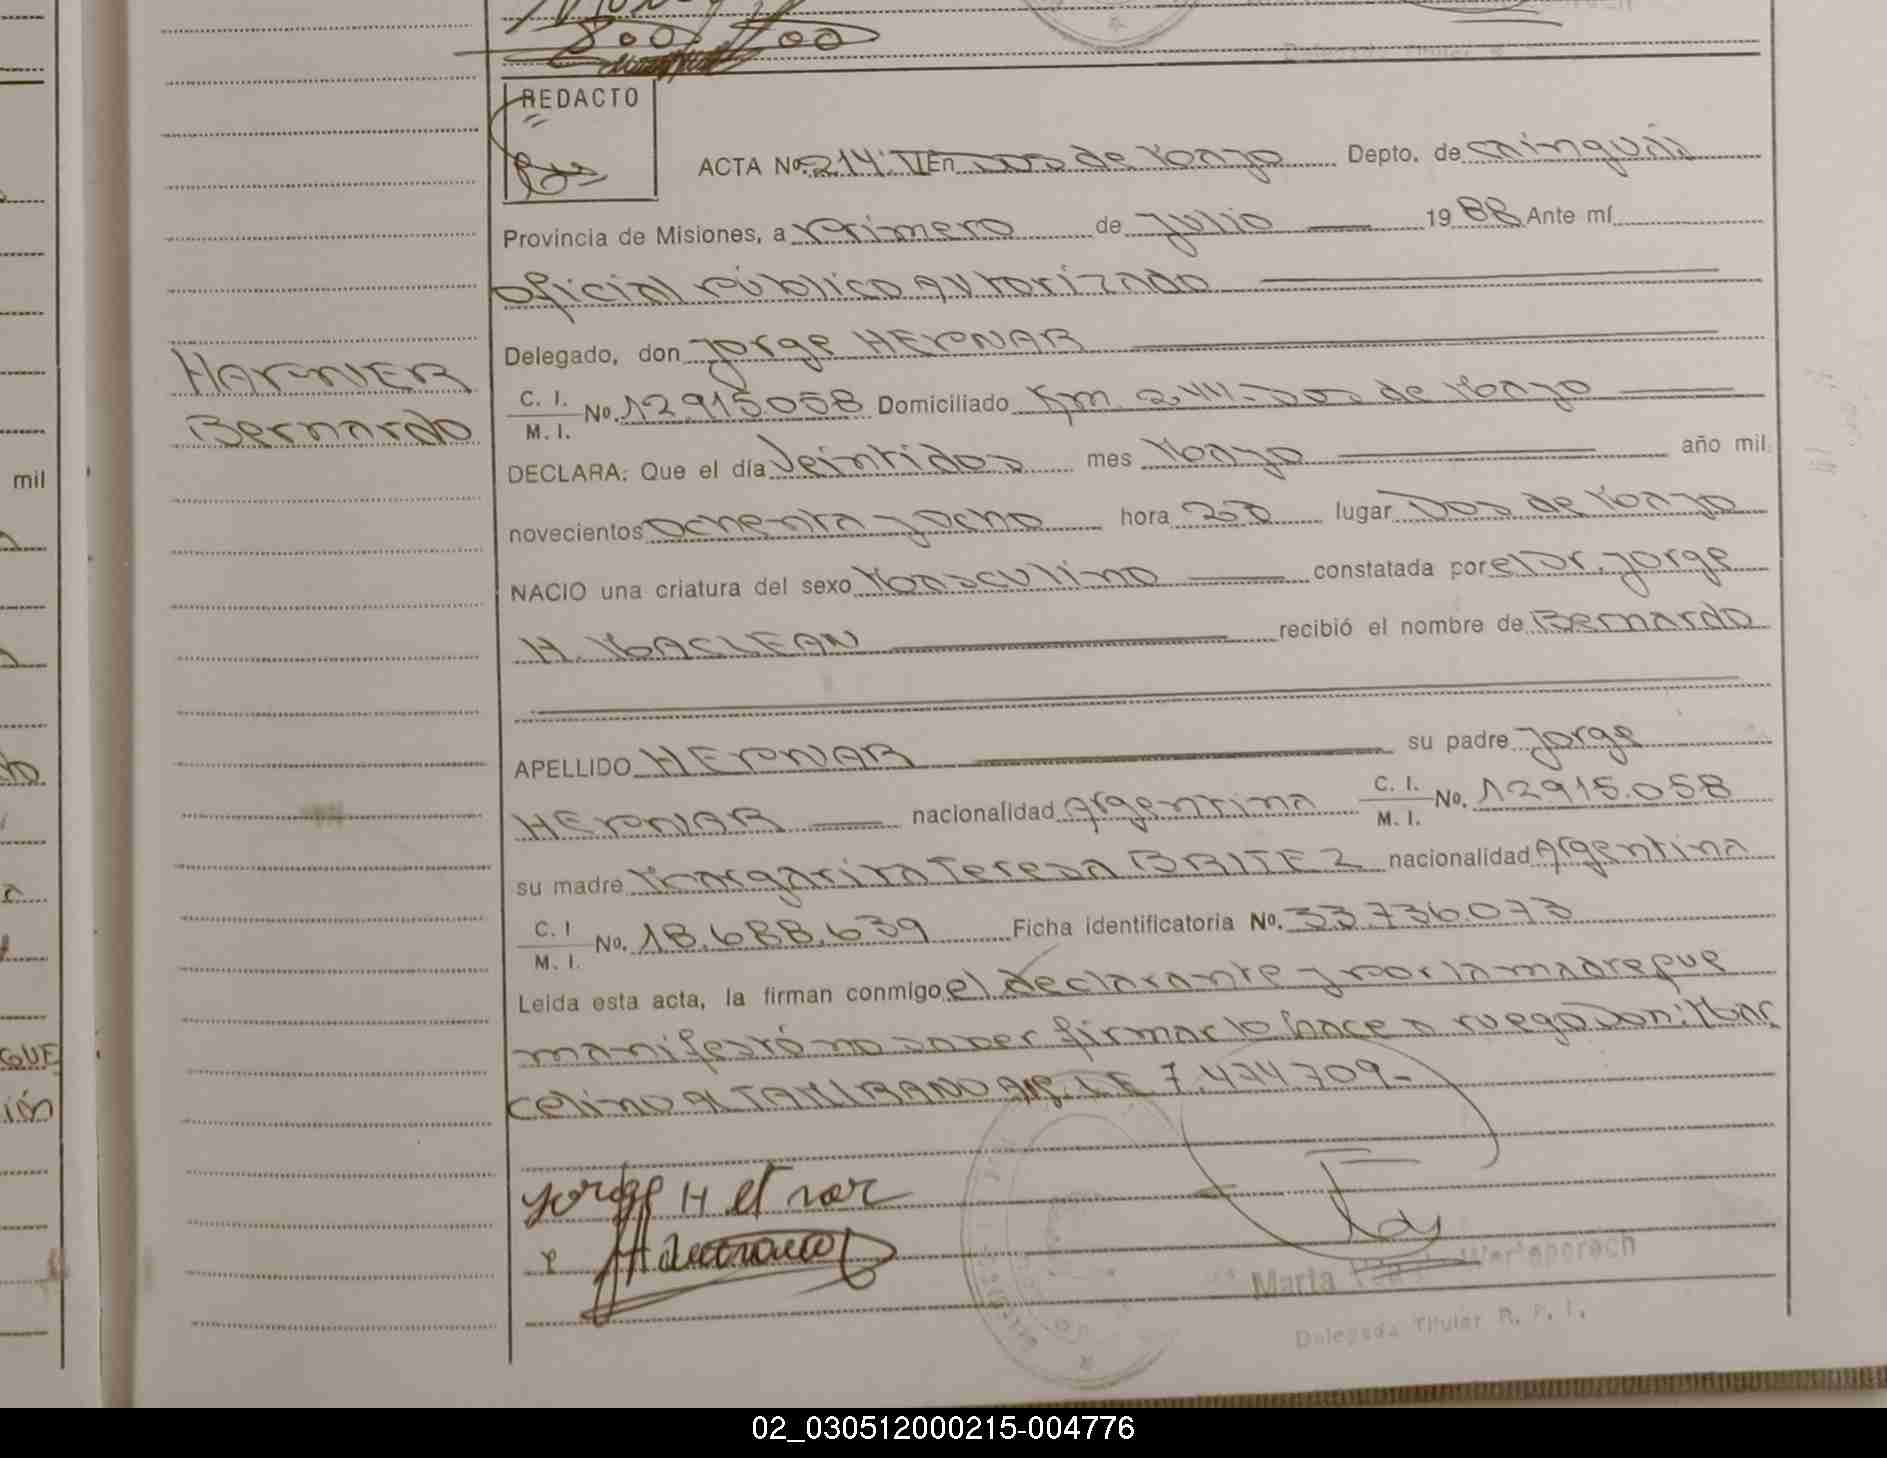 REDACTO
ACTA Nº 214. TI En Dos de Mayo Depto. de Cainguás
Provincia de Misiones, a Primero de Julio 1988 Ante mí
oficial público Autorizado
Delegado, don Jorge
HARNIER
C. I.
M. I. Nº. 12915.058 Domiciliado Km. 244-Dos de Mayo
Bernardo
DECLARA: Que el día Veintidos mes Mayo año mil
novecientos ochenta y ocho hora 20 lugar Dos de Mayo
NACIO una criatura del sexo Masculino constatada por el Dr. Jorge
H. MACLEAN recibió el nombre de Bernardo
APELLIDO su padre Jorge
nacionalidad Argentina C. I.
M. I. Nº. 12915.058
su madre Margarita Teresa BRITEZ nacionalidad Argentina
C. I
M. I. Nº. 18.688.639 Ficha identificatoria Nº. 33.736.073
Leida esta acta, la firman conmigo el declarante y por la madre que
manifestó no saber firmar lo hace a ruego Don: Mar
celino ALTAMIRANO Arg. L.E 7.474.709-
Jorge H
Marta
Delegada Titular R. P. I.
mil
QUE
ión
02_030512000215-004776